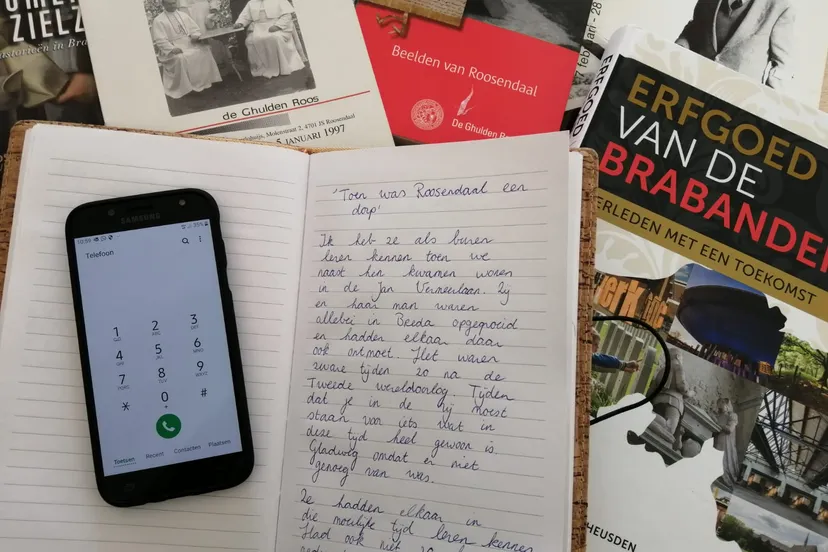 ZIELZ
storieën in Bra
de Ghulden Roos
huis, Molenstraat 2, 4701 JS Roosendaal
5 JANUARI 1997
Beelden van Roosendaal
De Ghulden R
februari - 28
ERFGOED
ERFGOED
VAN DE
BRABANDER
ERLEDEN MET EEN TOEKOMST
HEUSDEN
SAMSUNG
10:59
Telefoon
1 2 3
4 5 6
7 8 9
* 0 #
Toetsen Recent Contacten Plaatsen
'Toen was Roosendaal een
dorp'
Ik heb ze als buren
leren kennen toen we
naast hen kwamen wonen
in de Jan Vermeerlaan. Zij
en haar man waren
allebei in Breda opgegroeid
en hadden elkaar daar
ook ontmoet. Het waren
zware tijden zo na de
Tweede wereldoorlog. Tijden
dat je in de rij moest
staan voor iets wat in
deze tijd heel gewoon is.
Gladweg omdat er niet
genoeg van was.
Ze hadden elkaar in
die moeilijke tijd leren kennen
Had ook niet zo